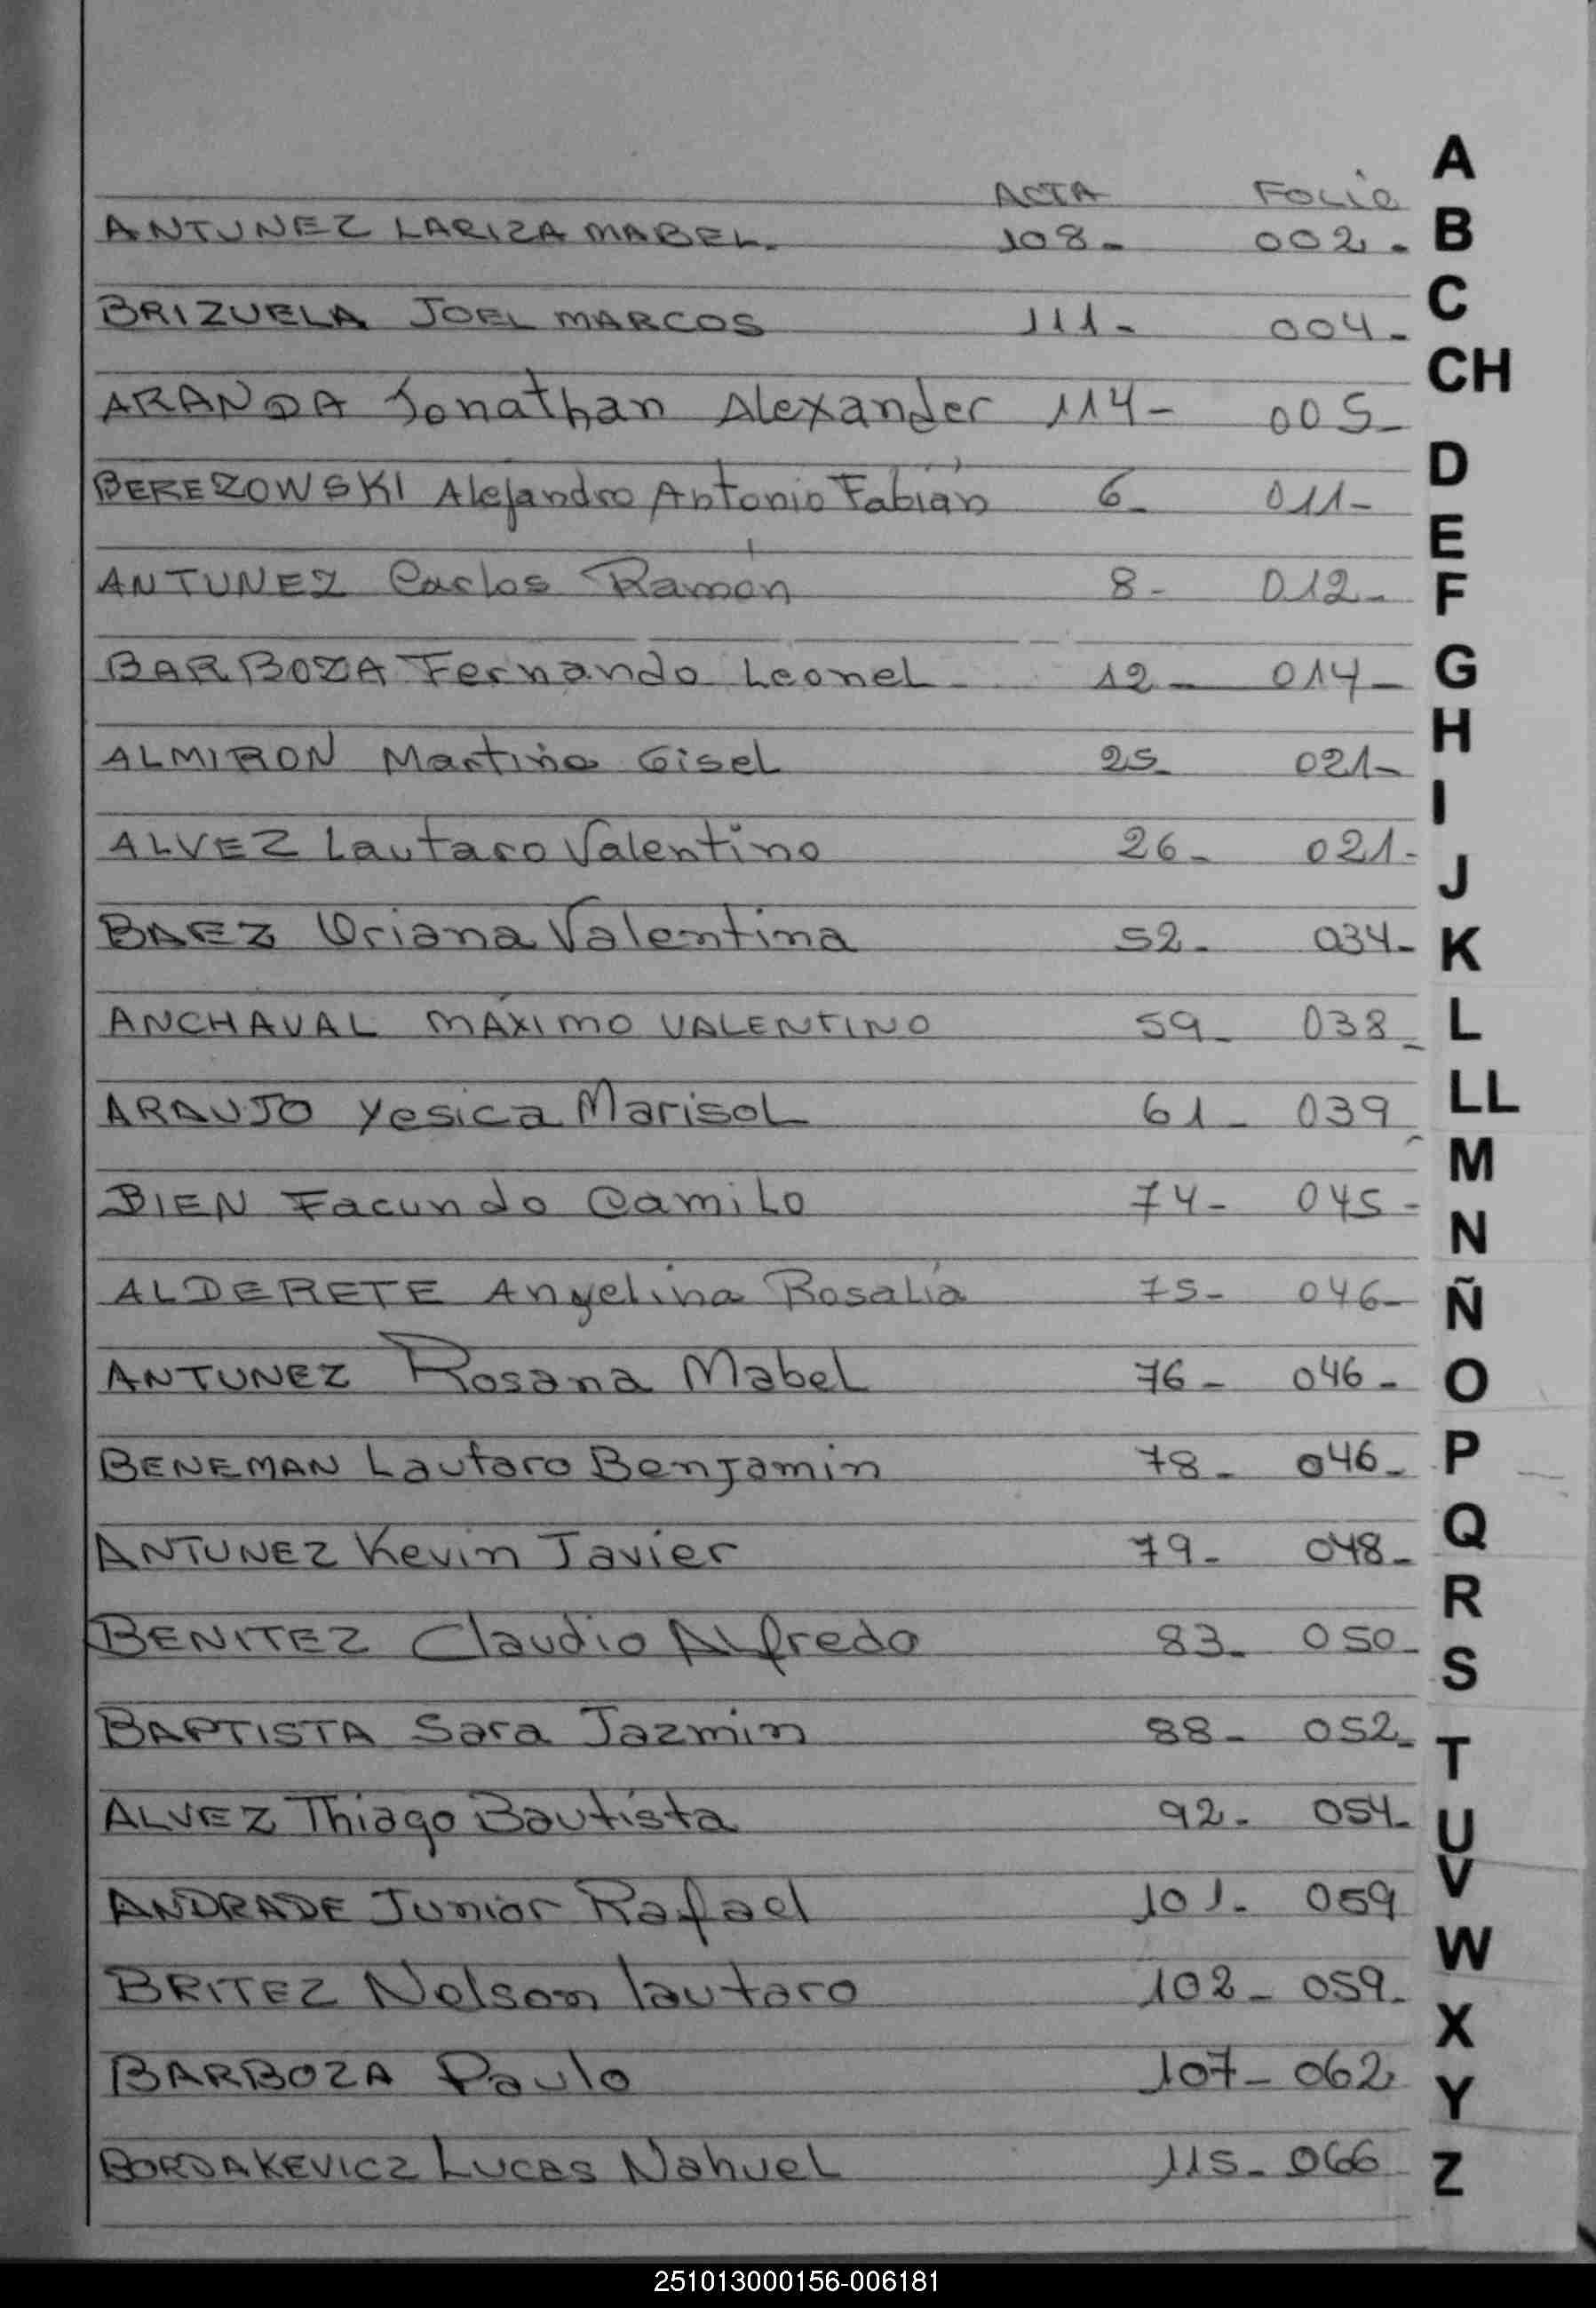 ACTA FOLIO A
ANTUNEZ LARIZA MABEL. 108- 002- B
C
BRIZUELA JOEL MARCOS 111- 004-
CH
ARANDA Jonathan Alexander 114- 005-
D
BEREZOWSKI Alejandro Antonio Fabián 6- 011-
E
ANTUNEZ Carlos Ramón 8- 012- F
BARBOZA Fernando Leonel 12- 014- G
H
ALMIRON Martina Gisel 25- 021-
I
ALVEZ Lautaro Valentino 26- 021-
J
BAEZ Oriana Valentina 52- 034- K
ANCHAVAL MÁXIMO VALENTINO 59- 038- L
LL
ARAUJO Yesica Marisol 61- 039-
M
BIEN Facundo Camilo 74- 045-
N
ALDERETE Angelina Rosalía 75- 046- Ñ
ANTUNEZ Rosana Mabel 76- 046- O
BENEMAN Lautaro Benjamin 78- 046- P
Q
ANTUNEZ Kevin Javier 79- 048-
R
BENITEZ Claudio Alfredo 83- 050-
S
BAPTISTA Sara Jazmin 88- 052-
T
ALVEZ Thiago Bautista 92- 054- U
V
ANDRADE Junior Rafael 101- 059
W
BRITEZ Nelson lautaro 102- 059-
X
BARBOZA Paulo 107- 062
Y
BORDAKEVICZ Lucas Nahuel 115- 066 Z
251013000156-006181